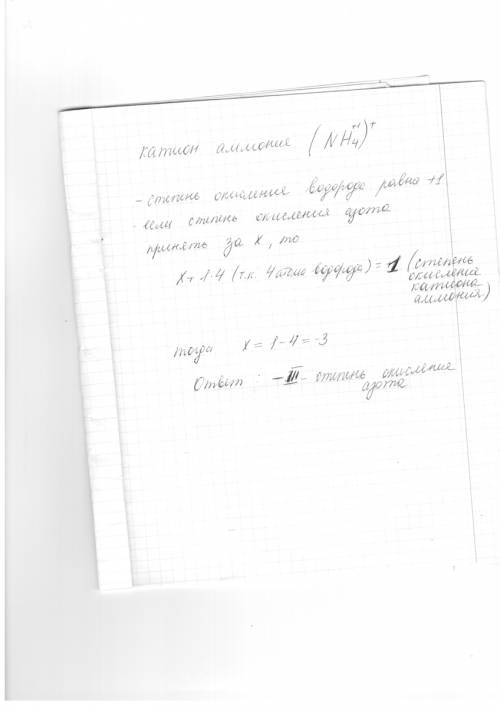 катион аммония (NH₄⁺¹)⁺
- степень окисления водорода равна +1
- если степень окисления азота
принять за x, то
x + 1·4 (т.к. 4 атома водорода) = 1 (степень
окисления
катиона
аммония)
тогда x = 1 - 4 = -3
Ответ: -III - степень окисления
азота